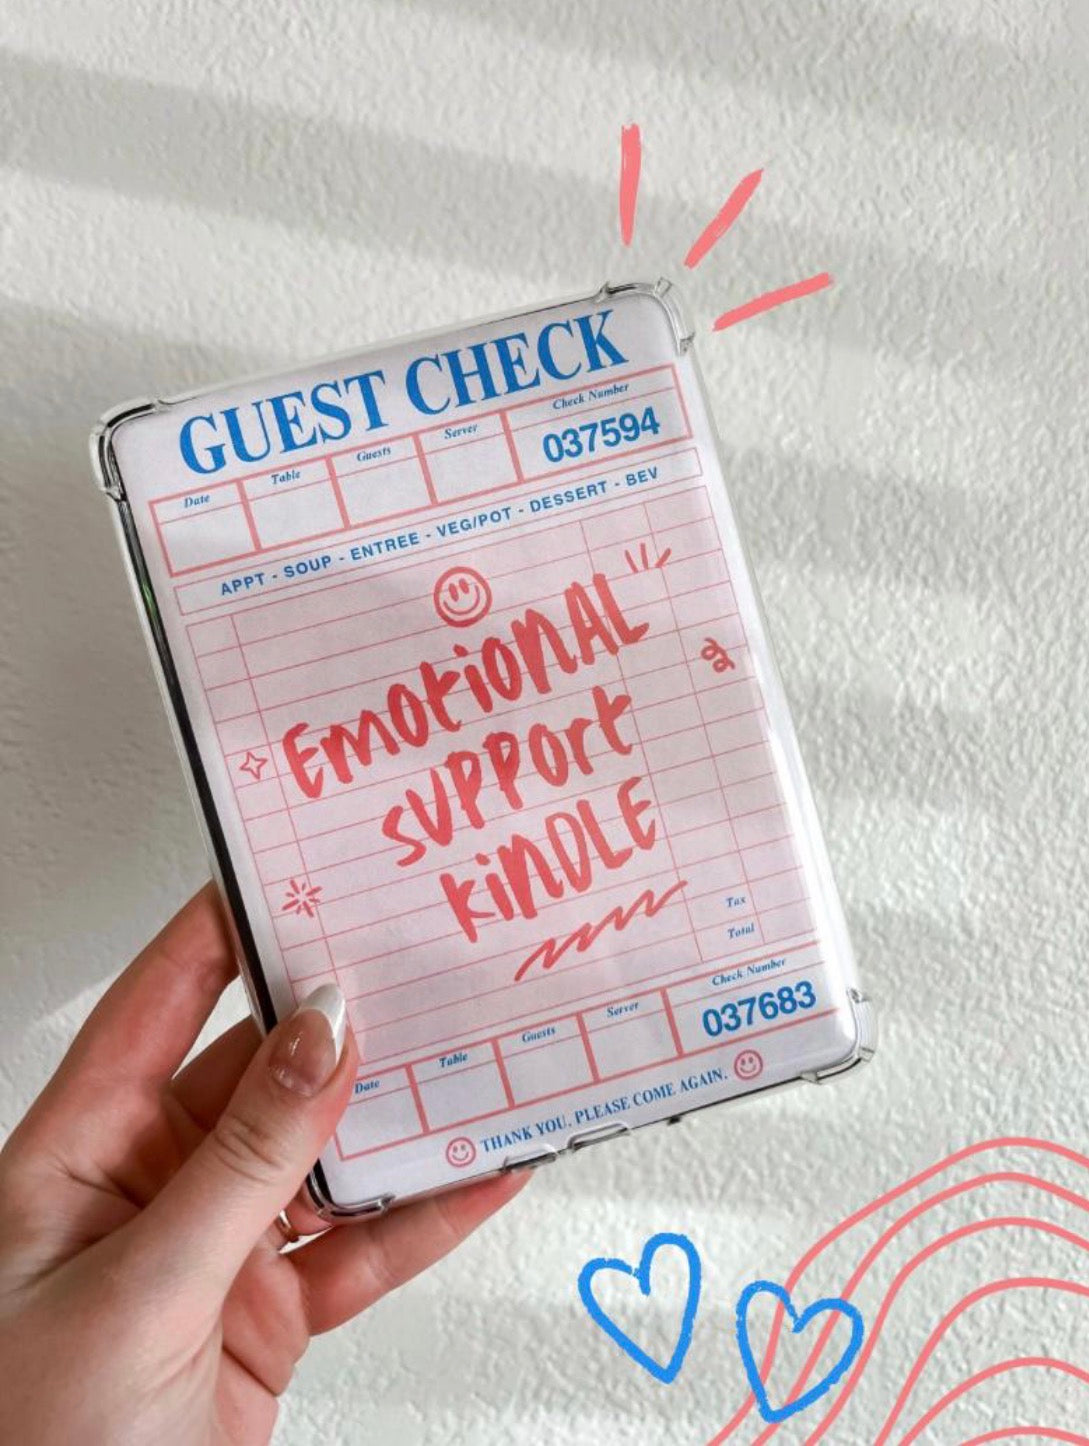 GUEST CHECK
Date Table Guests Server Check Number
037594
APPT - SOUP - ENTREE - VEG/POT - DESSERT - BEV
EMOtiONAL
SUPPOrt
KiNDLE
Tax
Total
Date Table Guests Server Check Number
037683
THANK YOU. PLEASE COME AGAIN.